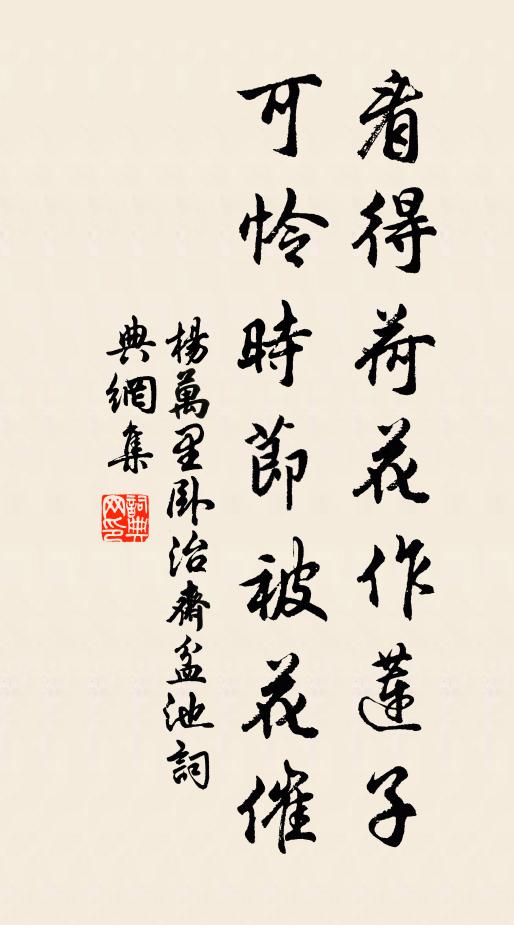 看得荷花作蓮子
可憐時節被花催
楊萬里臥治齋盆池詞
典網集
詞典網印